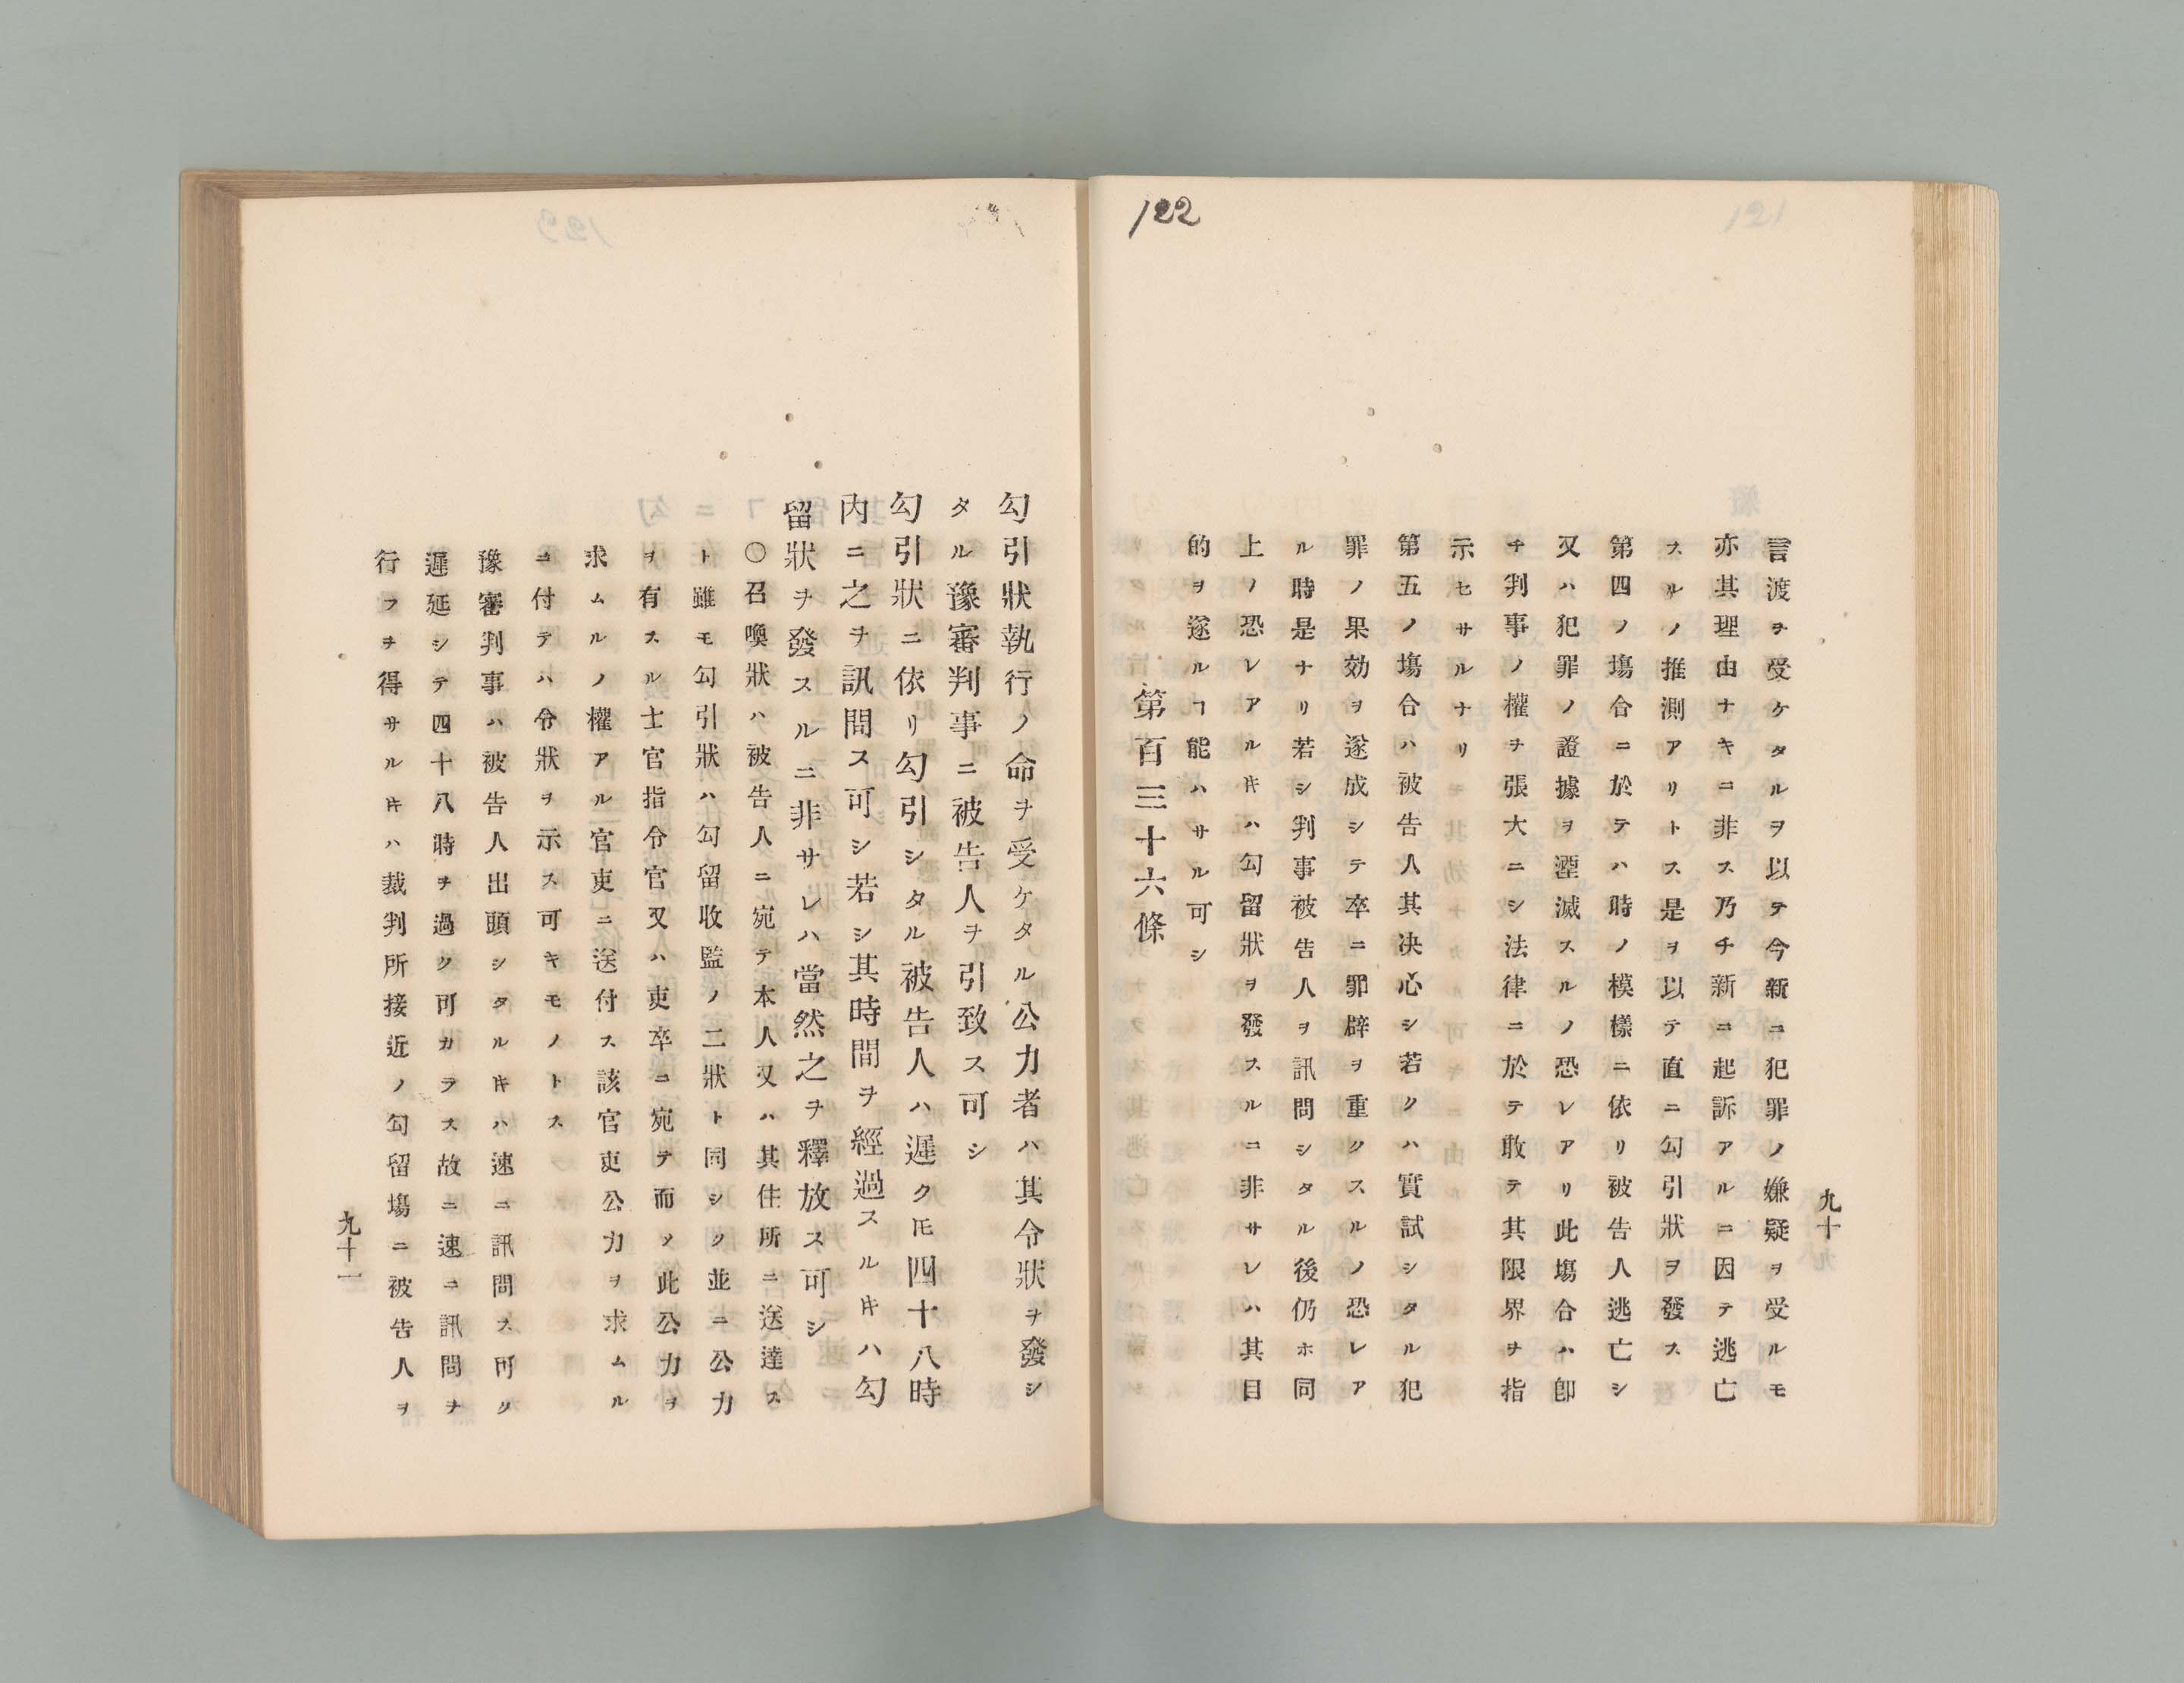 122
言渡ヲ受ケタルヲ以テ今新ニ犯罪ノ嫌疑ヲ受ルモ
亦其理由ナキニ非ス乃チ新ニ起訴アルニ因テ逃亡
スルノ推測アリトス是ヲ以テ直ニ勾引狀ヲ發ス
第四ノ塲合ニ於テハ時ノ模樣ニ依リ被告人逃亡シ
又ハ犯罪ノ證據ヲ湮滅スルノ恐レアリ此塲合ハ卽
チ判事ノ權ヲ張大ニシ法律ニ於テ敢テ其限界ヲ指
示セサルナリ
第五ノ塲合ハ被告人其決心シ若クハ實試シタル犯
罪ノ果効ヲ遂成シテ卒ニ罪辟ヲ重クスルノ恐レア
ル時是ナリ若シ判事被告人ヲ訊問シタル後仍ホ同
上ノ恐レアルキハ勾留狀ヲ發スルニ非サレハ其目
的ヲ遂ルヿ能ハサル可シ
第百三十六條
九十
勾引狀執行ノ命ヲ受ケタル公力者ハ其令狀ヲ發シ
タル豫審判事ニ被告人ヲ引致ス可シ
勾引狀ニ依リ勾引シタル被告人ハ遲クㇳモ四十八時
內ニ之ヲ訊問ス可シ若シ其時間ヲ經過スルキハ勾
留狀ヲ發スルニ非サレハ當然之ヲ釋放ス可シ
〇召喚狀ハ被告人ニ宛テ本人又ハ其住所ニ送達ス
ト雖モ勾引狀ハ勾留收監ノ二狀ト同シク並ニ公力
ヲ有スル士官指令官又ハ吏卒ニ宛テ而ソ此公力ヲ
求ムルノ權アル官吏ニ送付ス該官吏公力ヲ求ムル
ニ付テハ令狀ヲ示ス可キモノトス
豫審判事ハ被告人出頭シタルキハ速ニ訊問ス可ク
遲延シテ四十八時ヲ過ク可カラス故ニ速ニ訊問ヲ
行フヲ得サルキハ裁判所接近ノ勾留塲ニ被告人ヲ
九十一